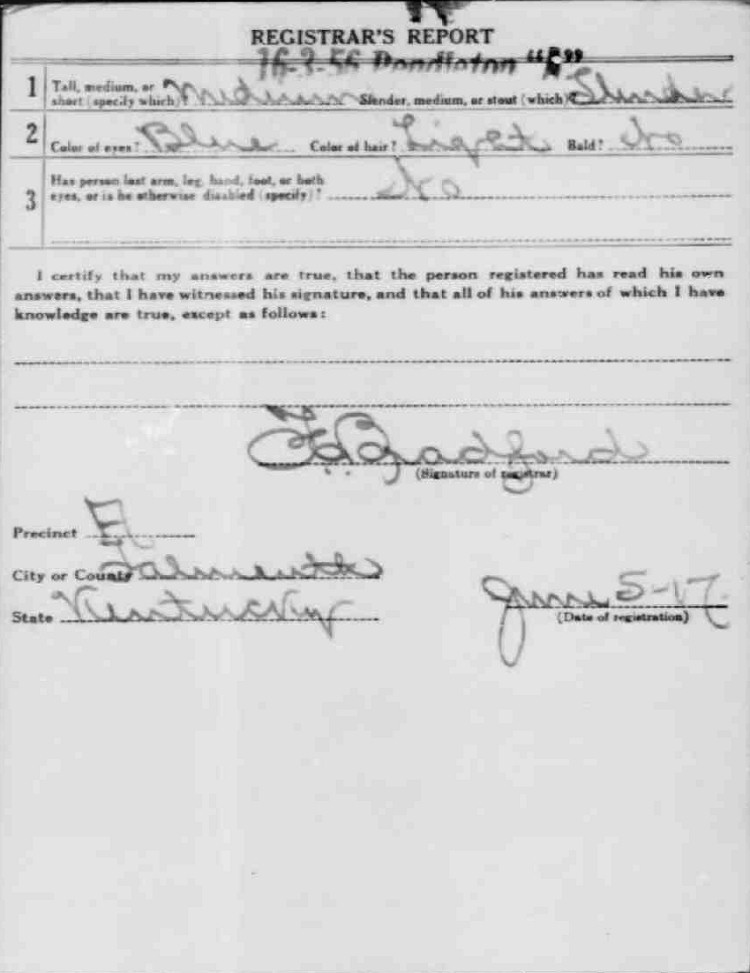 REGISTRAR'S REPORT
16-3-56 Pendleton "C"
1 Tall, medium, or short (specify which)? Medium Slender, medium, or stout (which)? Slender
2 Color of eyes? Blue Color of hair? Light Bald? No
3 Has person lost arm, leg, hand, foot, or both
eyes, or is he otherwise disabled (specify)? No
I certify that my answers are true, that the person registered has read his own
answers, that I have witnessed his signature, and that all of his answers of which I have
knowledge are true, except as follows:
Bradford
(Signature of registrar)
Precinct
City or County Falmouth
State Kentucky
June 5-17
(Date of registration)